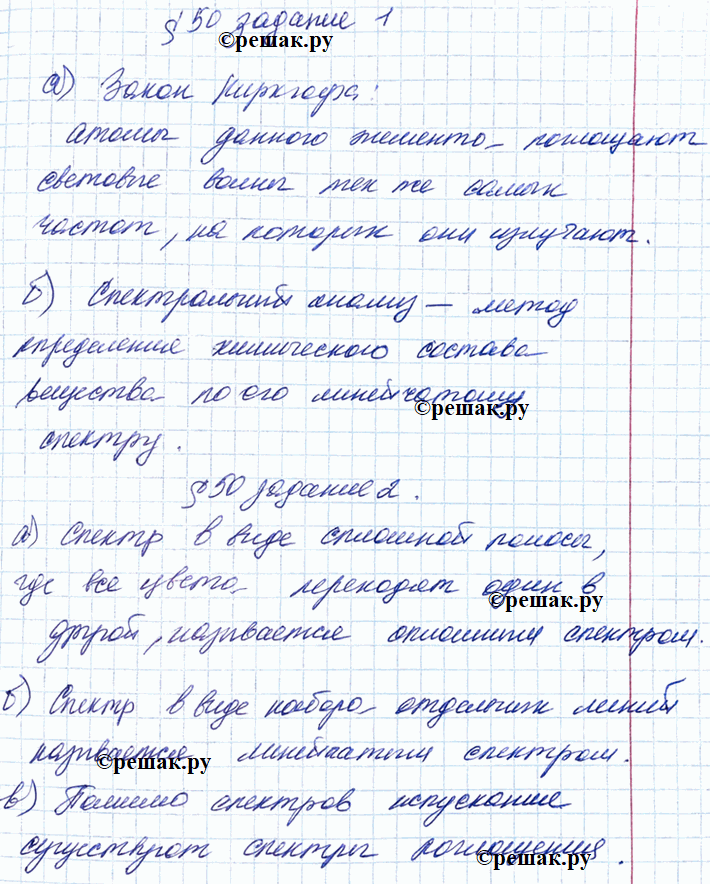 § 50 задание 1
©решак.ру
а) Закон Кирхгофа:
атомы данного элемента поглощают
световые волны тех же самых
частот, на которых они излучают.
б) Спектральный анализ – метод
определения химического состава
вещества по его линейчатому
©решак.ру
спектру.
§ 50 задание 2.
а) Спектр в виде сплошной полосы,
где все цвета переходят один в
©решак.ру
другой, называется сплошным спектром.
б) Спектр в виде набора отдельных линий
называется линейчатым спектром.
©решак.ру
в) Помимо спектров испускания
существуют спектры поглощения.
©решак.ру